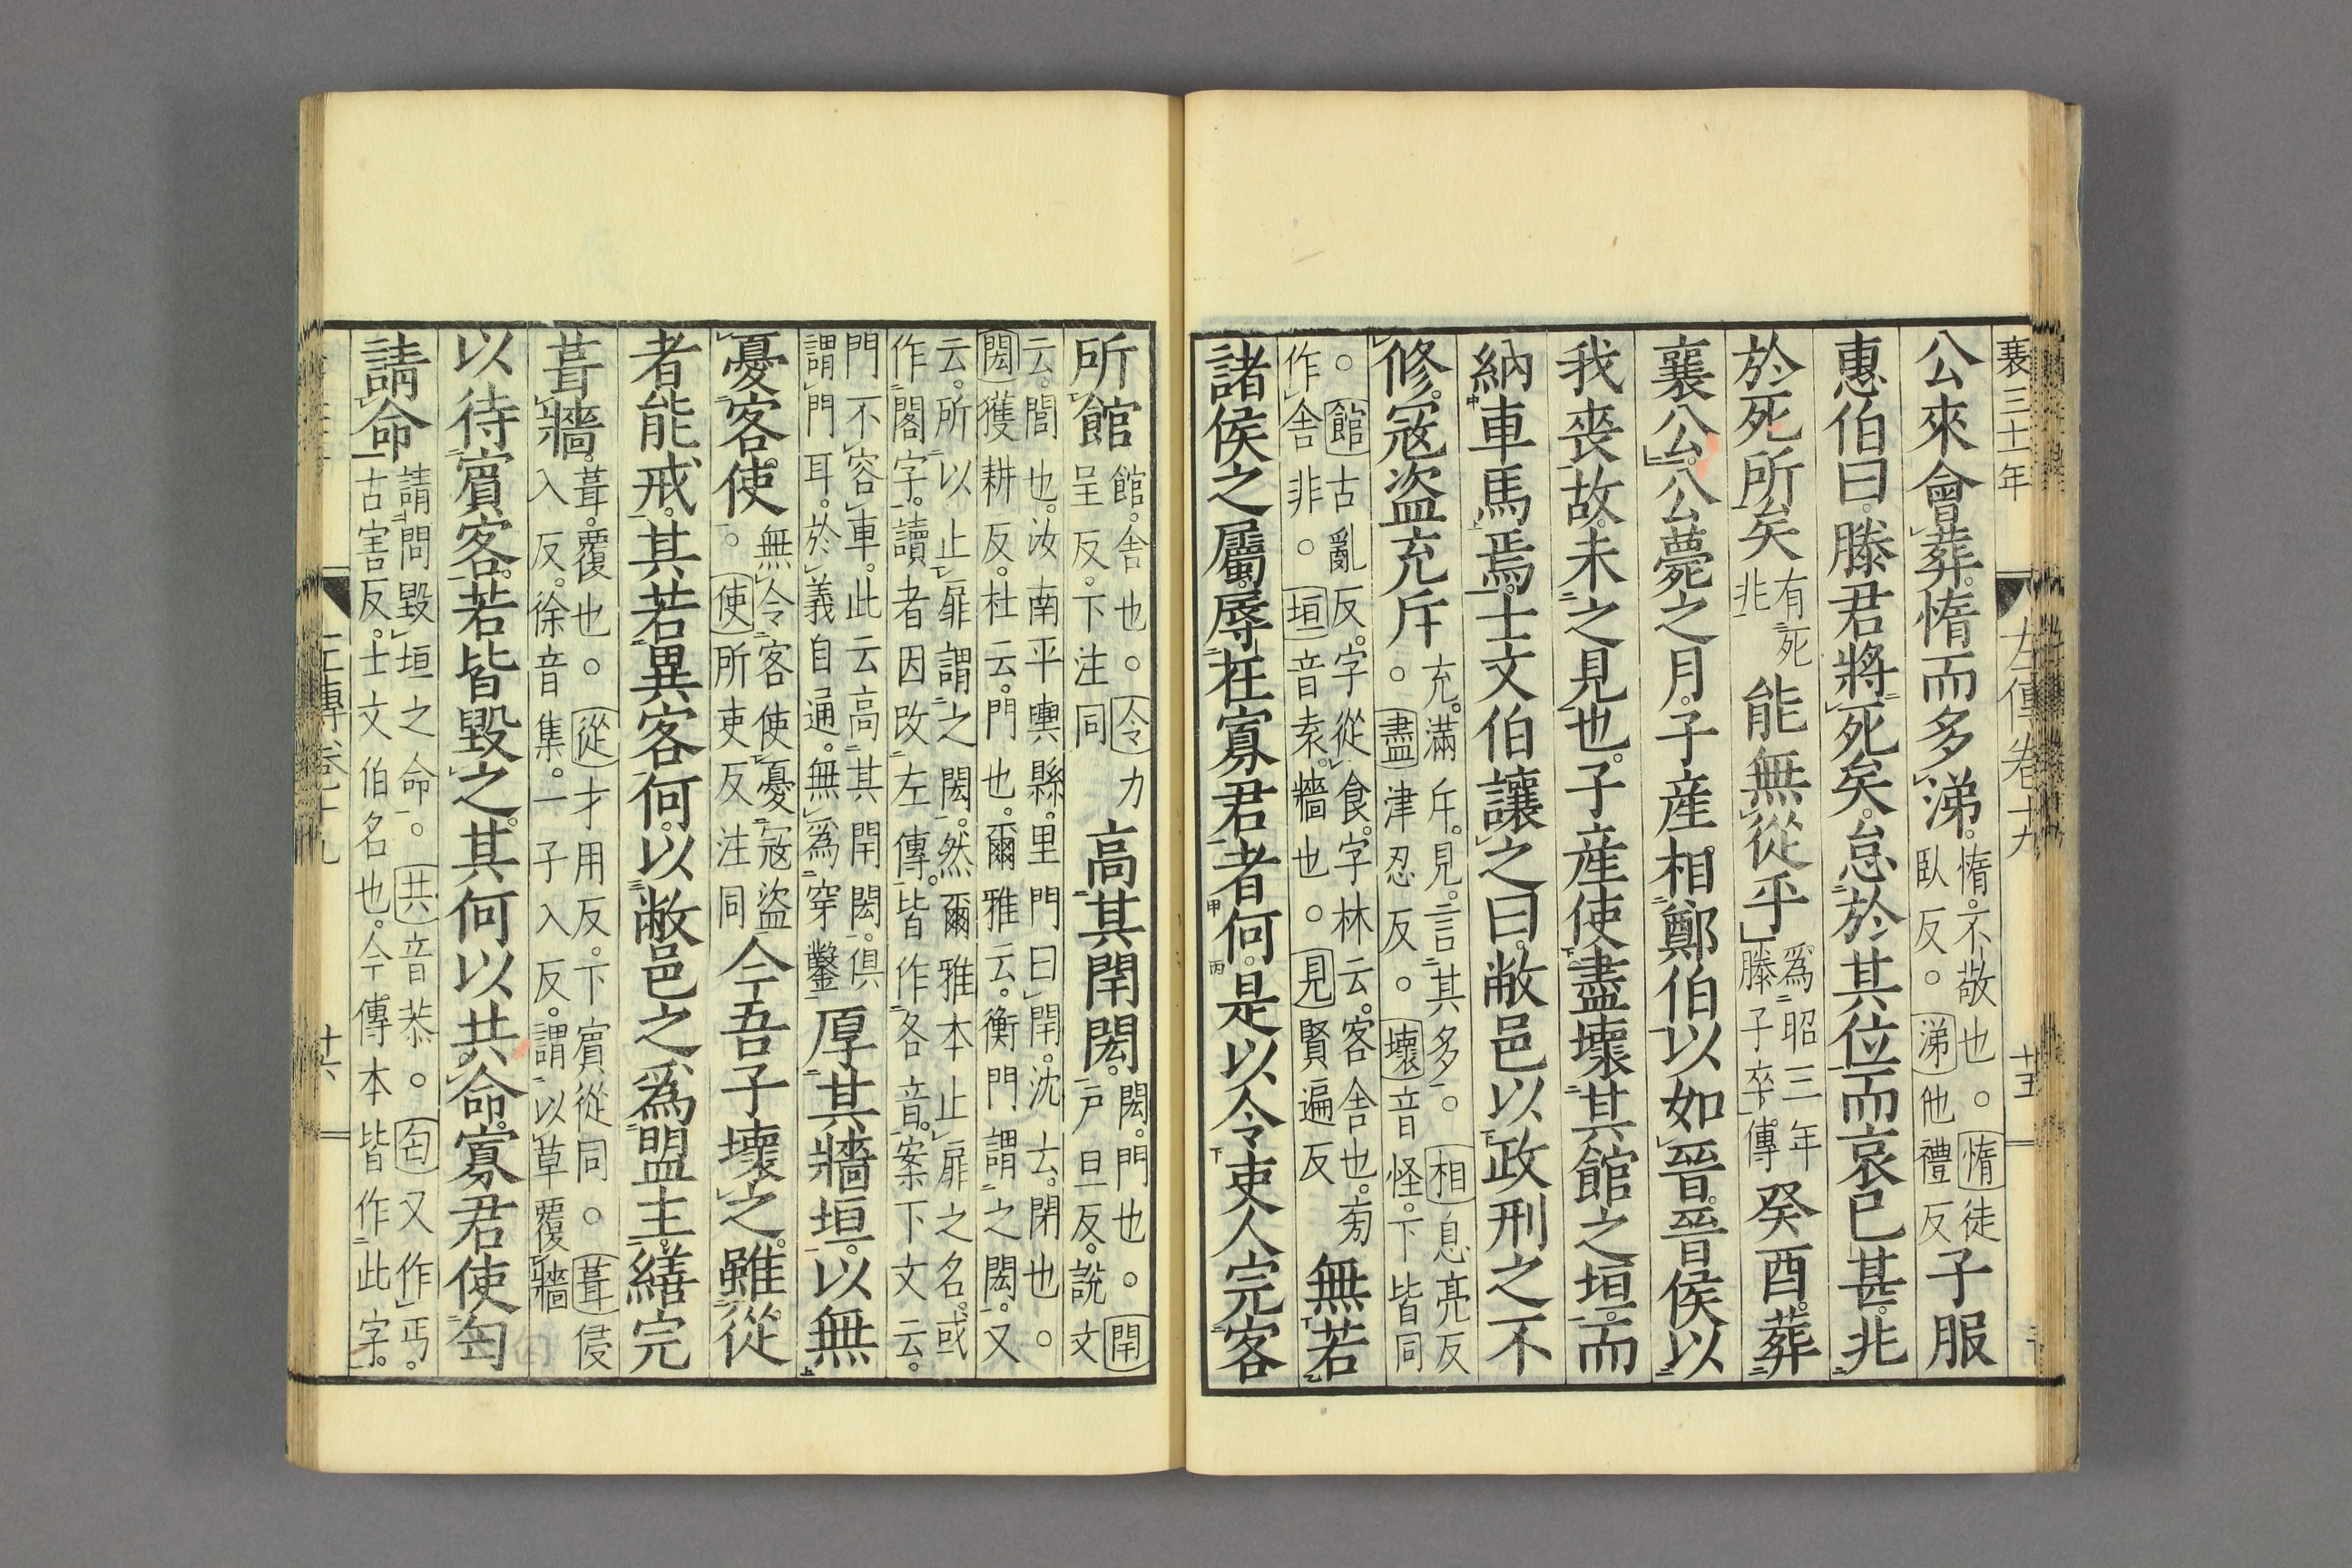 襄三十一年　左傳卷十九　十五
公來會葬。惰而多涕。惰。不敬也。○惰徒臥反。○涕他禮反子服
惠伯曰。滕君將死矣。怠於其位。而哀已甚。兆
於死所矣有死兆能無從乎爲昭三年滕子卒傳癸酉。葬
襄公。公薨之月。子産相鄭伯以如晉。晉侯以
我喪故。未之見也。子産使盡壞其館之垣。而
納車馬焉。士文伯讓之曰。敝邑以政刑之不
修。寇盗充斥。充。滿斥。見。言其多。○相息亮反○盡津忍反。○壞音怪。下皆同
○館古亂反。字從食。字林云。客舎也。旁作舎非。○垣音袁。牆也。○見賢遍反無若
諸侯之屬。辱在寡君者何。是以令吏人完客
所館館。舎也。○令力呈反。下注同高其閈閎。閎。門也。○閈戸旦反。說文
云。閭也。汝南平輿縣。里門曰閈。沈云。閉也。○閎獲耕反。杜云。門也。爾雅云。衡門謂之閎。又
云。所以止扉謂之閎。然爾雅本止扉之名。或作閣字。讀者因改左傳。皆作各音。案下文云。
門不容車。此云高其閈閎。倶謂門耳。於義自通。無爲穿鑿厚其牆垣。以無
憂客使。無令客使憂寇盗。○使所吏反注同今吾子壞之。雖從
者能戒。其若異客何。以敝邑之爲盟主。繕完
葺牆。葺。覆也。○從才用反。下賓從同。○葺侵入反。徐音集。一子入反。謂以草覆牆
以待賓客。若皆毀之。其何以共命。寡君使匃
請命請問毀垣之命。○共音恭。○匃又作丐。古害反。士文伯名也。今傳本皆作此字。
左傳卷十九　十六